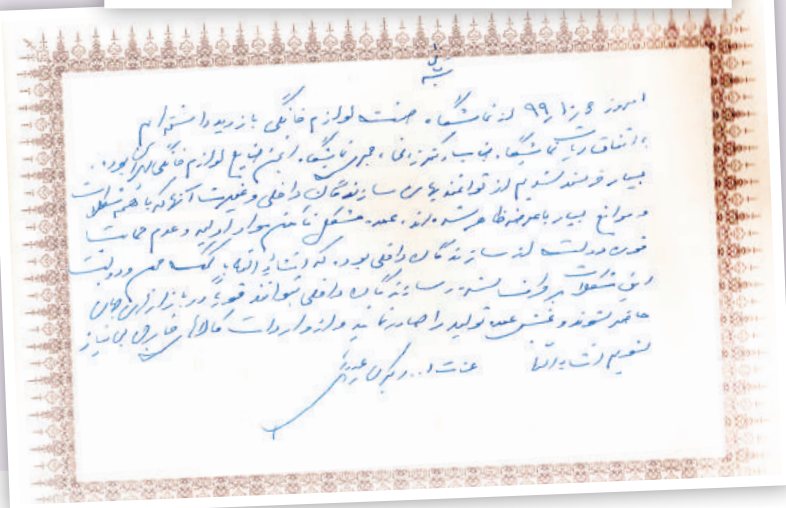 امروز ۹۹٫۱۰٫۶ از نمایشگاه صنعت لوازم خانگی بازدید داشته ام
به اتفاق ریاست نمایشگاه جناب دکتر زمانی، مجری نمایشگاه انجمن صنایع لوازم خانگی ایران بود.
بسیار خرسند شدیم از توانمندیهای سازندگان داخلی و غیرت آنها که با همه مشکلات
و موانع بسیار با عرضه ظاهر شده اند. عمده مشکل تامین مواد اولیه و عدم حمایت
قوی دولت از سازندگان داخلی بوده که انشاء الله با کمک مجلس و دولت
این مشکلات برداشته شده و سازندگان داخلی بتوانند قوی تر در بازارهای جهانی
حاضر شوند و بخش عمده تولید را صادر نمایند و از واردات کالای خارجی بی نیاز
شویم انشاءالله عزت ا...